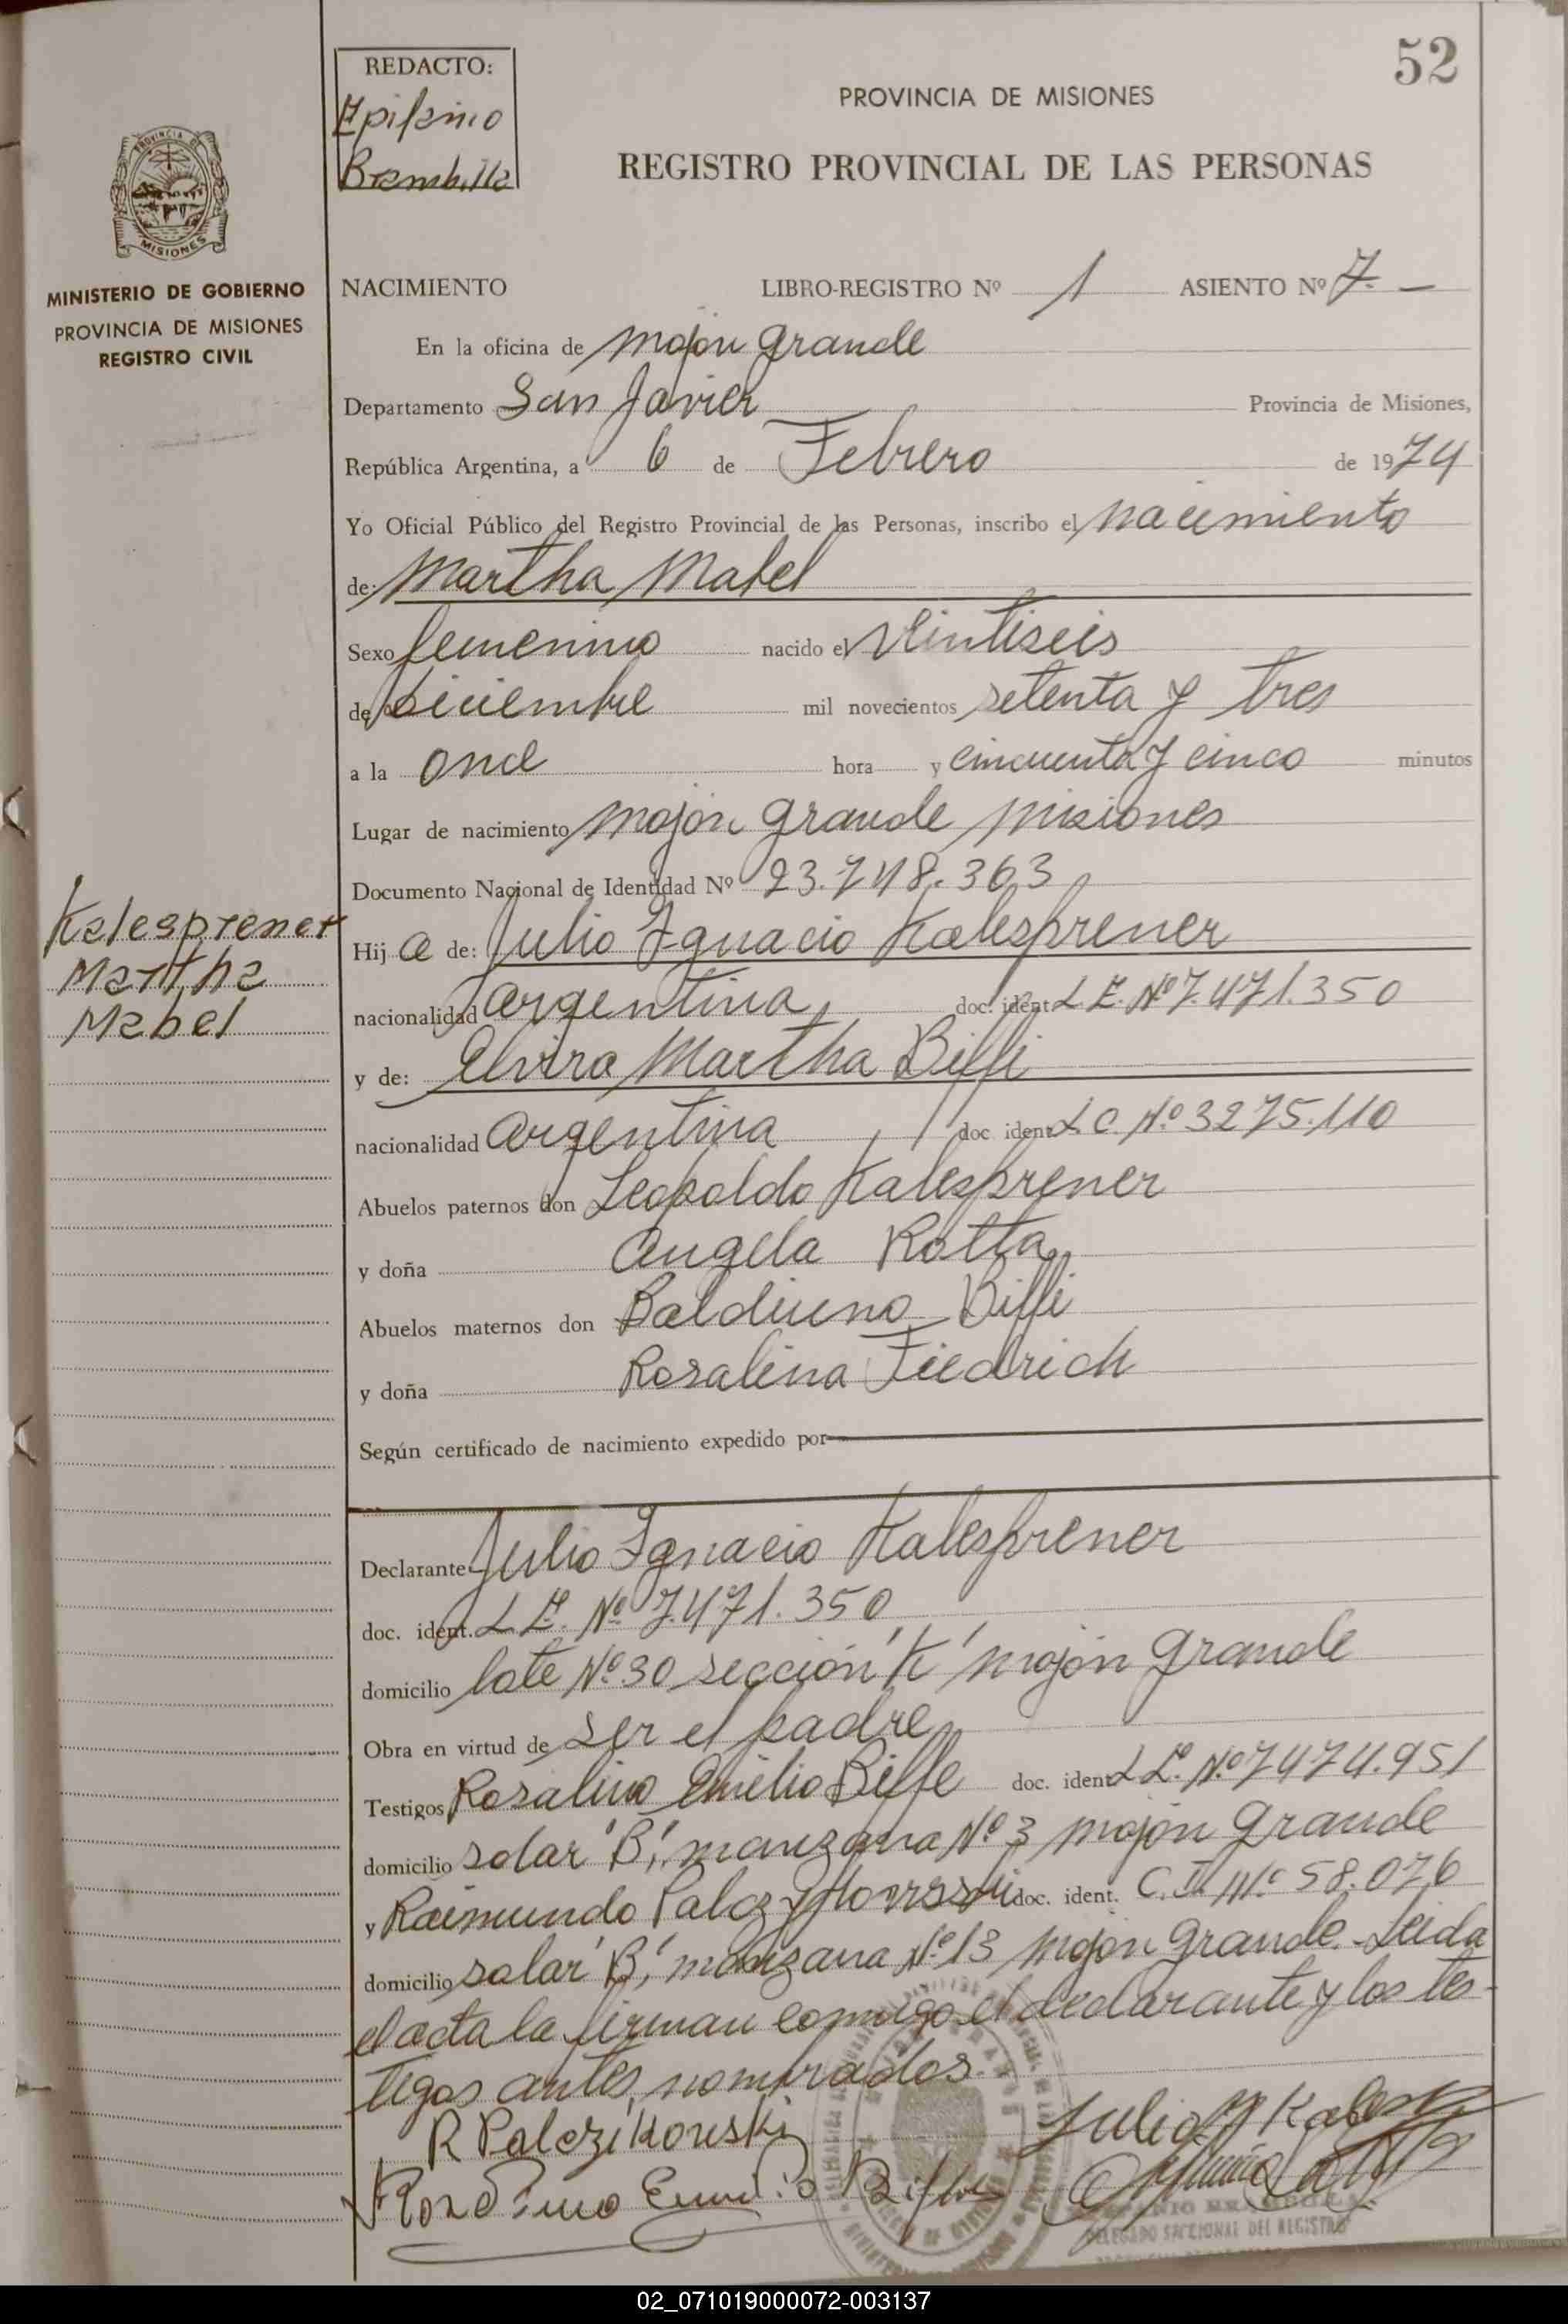 52
REDACTO:
Epifanio
Brambilla
PROVINCIA DE MISIONES
REGISTRO PROVINCIAL DE LAS PERSONAS
PROVINCIA DE
MISIONES
MINISTERIO DE GOBIERNO
PROVINCIA DE MISIONES
REGISTRO CIVIL
NACIMIENTO LIBRO-REGISTRO Nº 1 ASIENTO Nº 7.-
En la oficina de Mojón Grande
Departamento San Javier Provincia de Misiones,
República Argentina, a 6 de Febrero de 1974
Yo Oficial Público del Registro Provincial de las Personas, inscribo el nacimiento
de: Martha Mabel
Sexo femenino nacido el Veintiseis
de Diciembre mil novecientos setenta y tres
a la once hora y cincuenta y cinco minutos
Lugar de nacimiento Mojón Grande Misiones
Documento Nacional de Identidad Nº 23.748.363
Kalesprener
Martha
Mabel
Hija de: Julio Ignacio Kalesprener
nacionalidad Argentina doc. ident. L E. Nº 7.471.350
y de: Elvira Martha Biffi
nacionalidad Argentina doc ident. L C. Nº 3275.110
Abuelos paternos don Leopoldo Kalesprener
y doña Angela Rotta
Abuelos maternos don Balduino Biffi
y doña Rosalina Fiedrich
Según certificado de nacimiento expedido por
Declarante Julio Ignacio Kalesprener
doc. ident. L E. Nº 7.471.350
domicilio lote Nº 30 sección 'K' Mojón Grande
Obra en virtud de ser el padre
Testigos Rosalino Emilio Biffe doc. ident L E. Nº 7474.951
domicilio solar 'B', manzana Nº 3 Mojón Grande
y Raimundo doc. ident. C. I. Nº 58.076
domicilio solar 'B', manzana Nº 13 Mojón Grande.- Leida
el acta la firman conmigo el declarante y los tes-
tigos antes nombrados.-
R Palczikouski
Julio I Kalesp
Emilio
DELEGADO SECCIONAL DEL REGISTRO
02_071019000072-003137